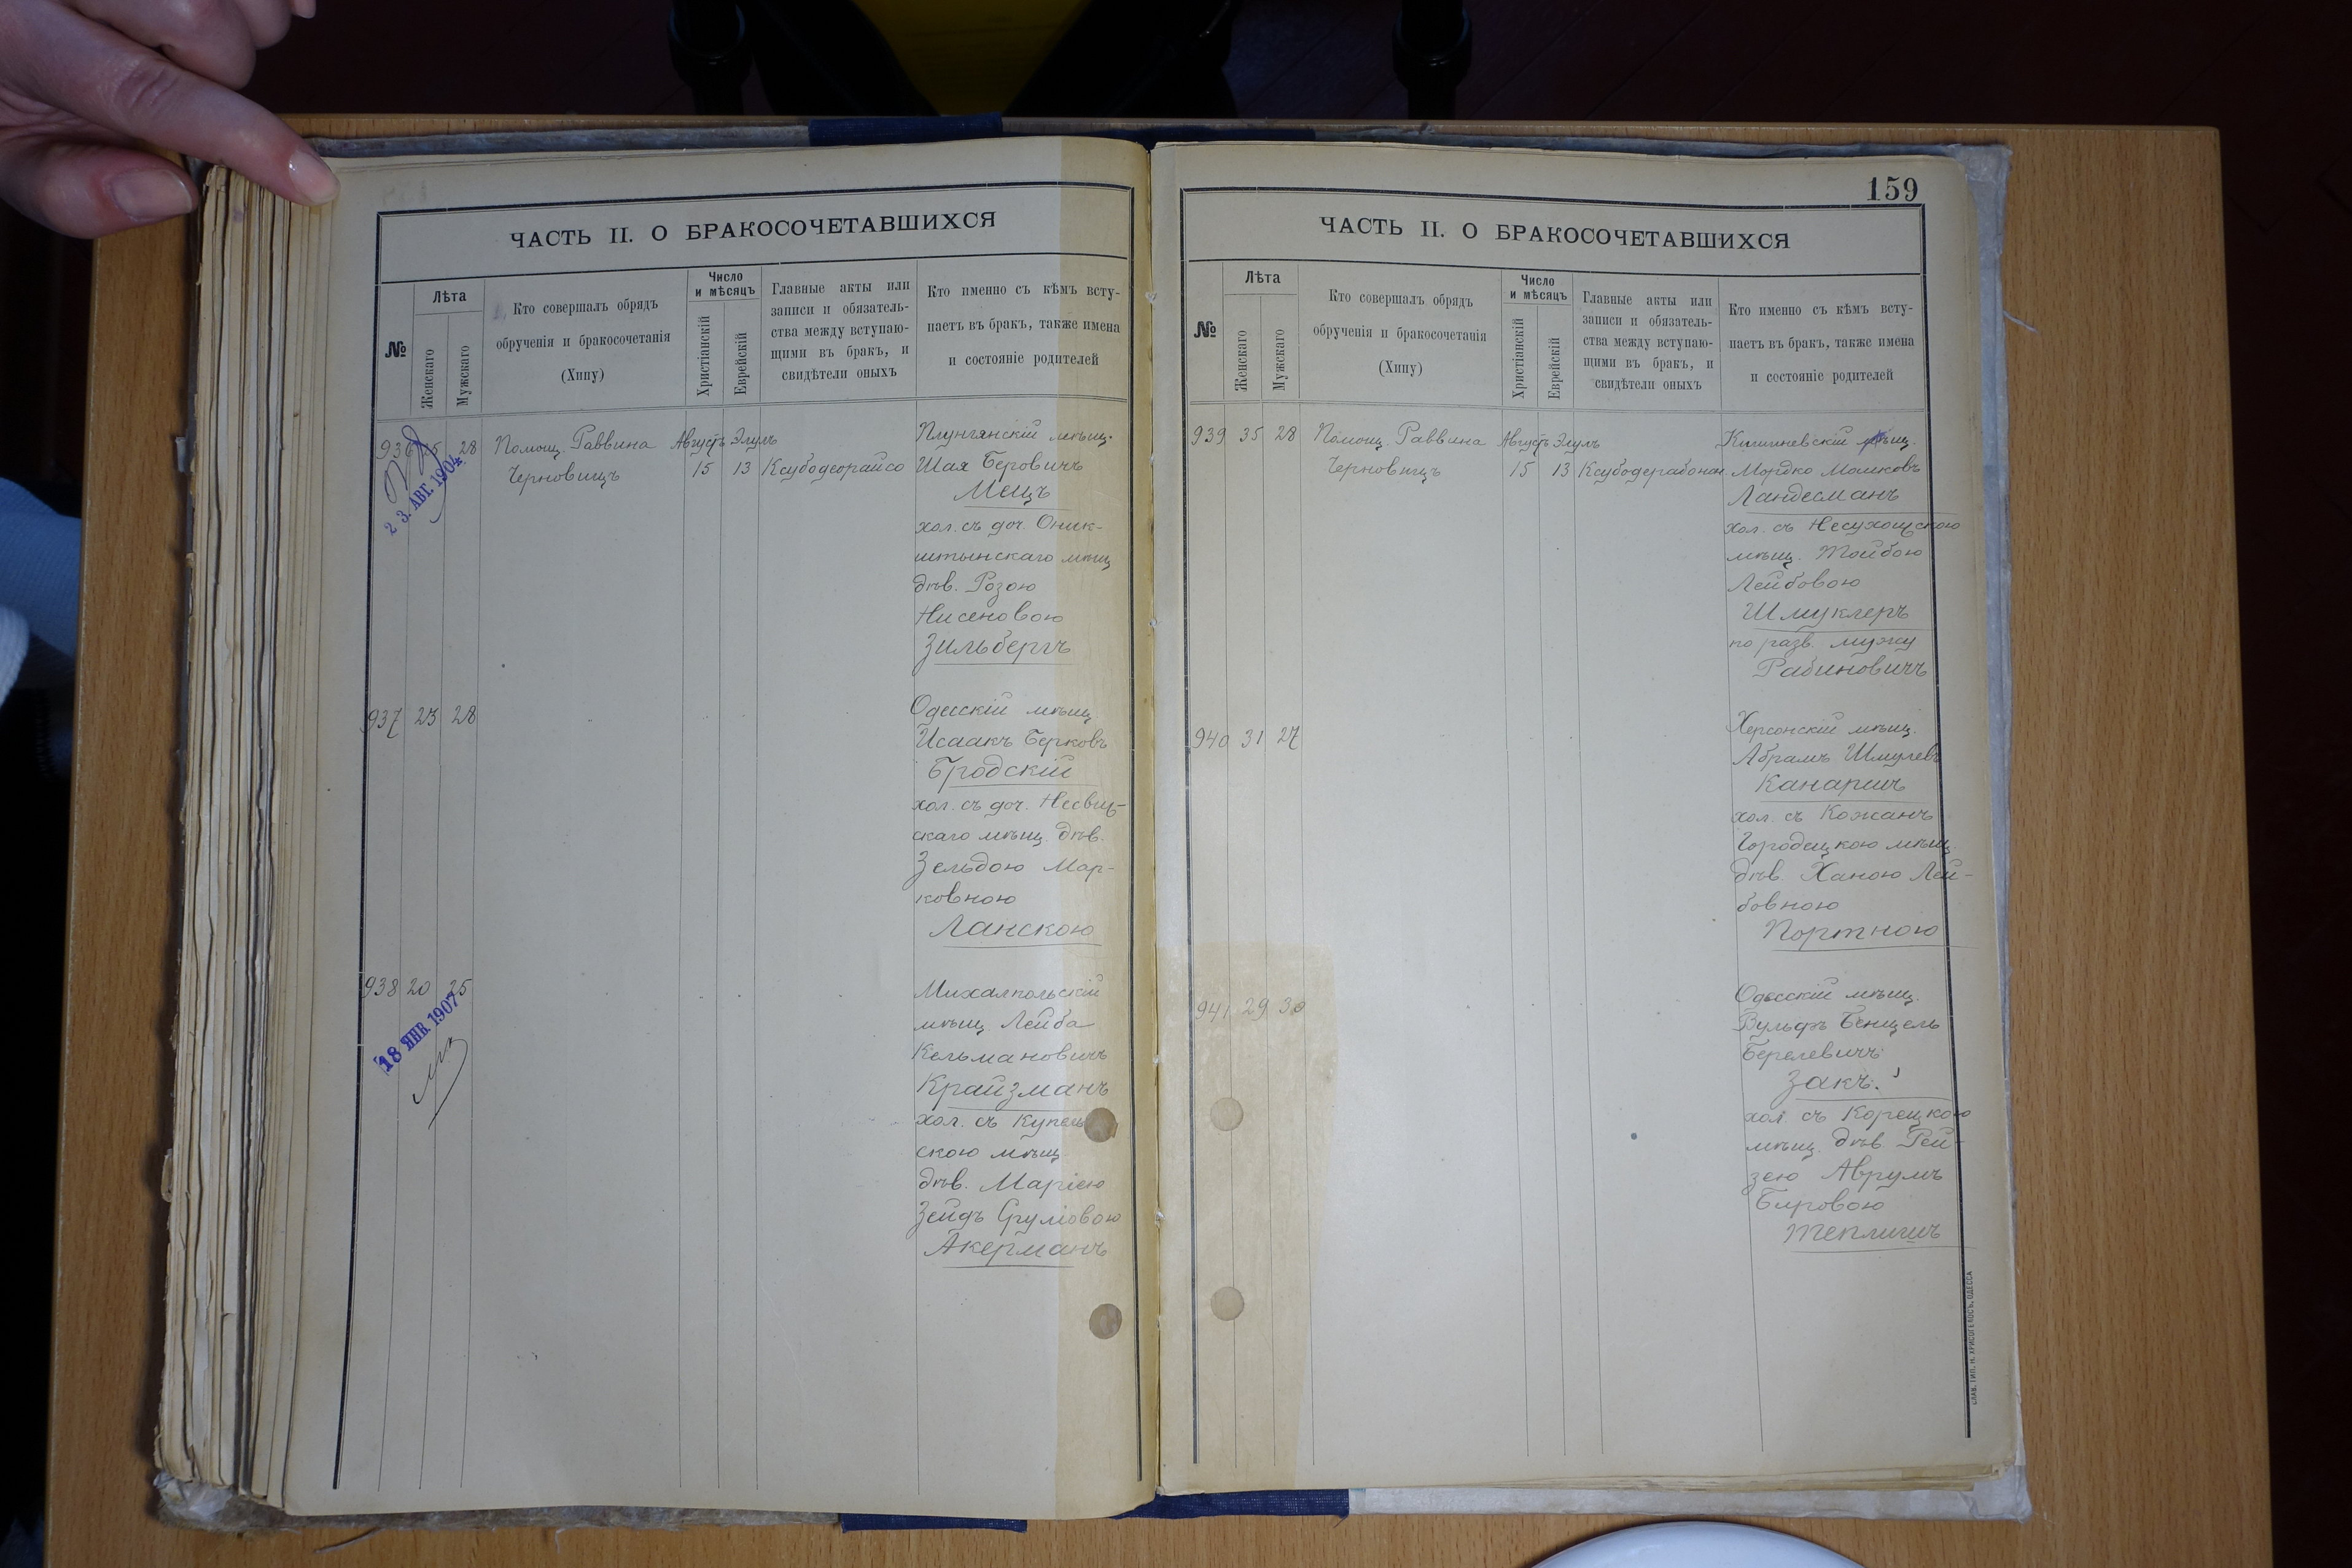 ЧАСТЬ II. О БРАКОСОЧЕТАВШИХСЯ
№
Лѣта
Женскаго
Мужскаго
Кто совершалъ обрядъ
обрученія и бракосочетанія
(Хипу)
Число
и мѣсяцъ
Христіанскій
Еврейскій
Главные акты или
записи и обязатель-
ства между вступаю-
щими въ бракъ, и
свидѣтели оныхъ
Кто именно съ кѣмъ всту-
паетъ въ бракъ, также имена
и состояніе родителей
936 28 Помощ. Раввина Августъ Элулъ Плунгянскій мѣщ.
Черновицъ 15 13 Ксубодеорайсо Шая Беровичъ
Мецъ
23 АВГ. 1904
хол. съ доч. Оник-
штынскаго мѣщ
дѣв. Розою
Нисеновою
Зильбергъ
937 23 28 Одесскій мѣщ
Исаакъ Берковъ
Бродскій
хол. съ доч. Несвиж-
скаго мѣщ. дѣв.
Зельдою Мар-
ковною
Ланскою
938 20 25 Михалпольскій
мѣщ Лейба
18 ЯНВ. 1907
Кельмановичъ
Крайзманъ
хол. съ Купель
скою мѣщ
дѣв. Маріею
Зейдъ Сруліовою
Акерманъ
159
ЧАСТЬ II. О БРАКОСОЧЕТАВШИХСЯ
№
Лѣта
Женскаго
Мужскаго
Кто совершалъ обрядъ
обрученія и бракосочетанія
(Хипу)
Число
и мѣсяцъ
Христіанскій
Еврейскій
Главные акты или
записи и обязатель-
ства между вступаю-
щими въ бракъ, и
свидѣтели оныхъ
Кто именно съ кѣмъ всту-
паетъ въ бракъ, также имена
и состояніе родителей
939 35 28 Помощ. Раввина Августъ Элулъ Кишиневскій мѣщ.
Черновицъ 15 13 Ксубодерабонон Мордко Мошковъ
Ландесманъ
хол. съ Несухоицскою
мѣщ. Тойбою
Лейбовою
Шмуклеръ
по разв. мужу
Рабиновичъ
940 31 27 Херсонскій мѣщ.
Абрамъ Шмулевъ
Канаричъ
хол. съ Кожанъ
Городецкою мѣщ.
дѣв. Ханою Лей-
бовною
Портною
941 29 30 Одесскій мѣщ.
Вульфъ Бенцель
Берелевичъ
Закъ.
хол. съ Корецкою
мѣщ. дѣв. Рей-
зею Аврумъ
Беровою
Теплицъ
СЛАВ. ТИП. Н. ХРИСОГЕЛОСЪ, ОДЕССА